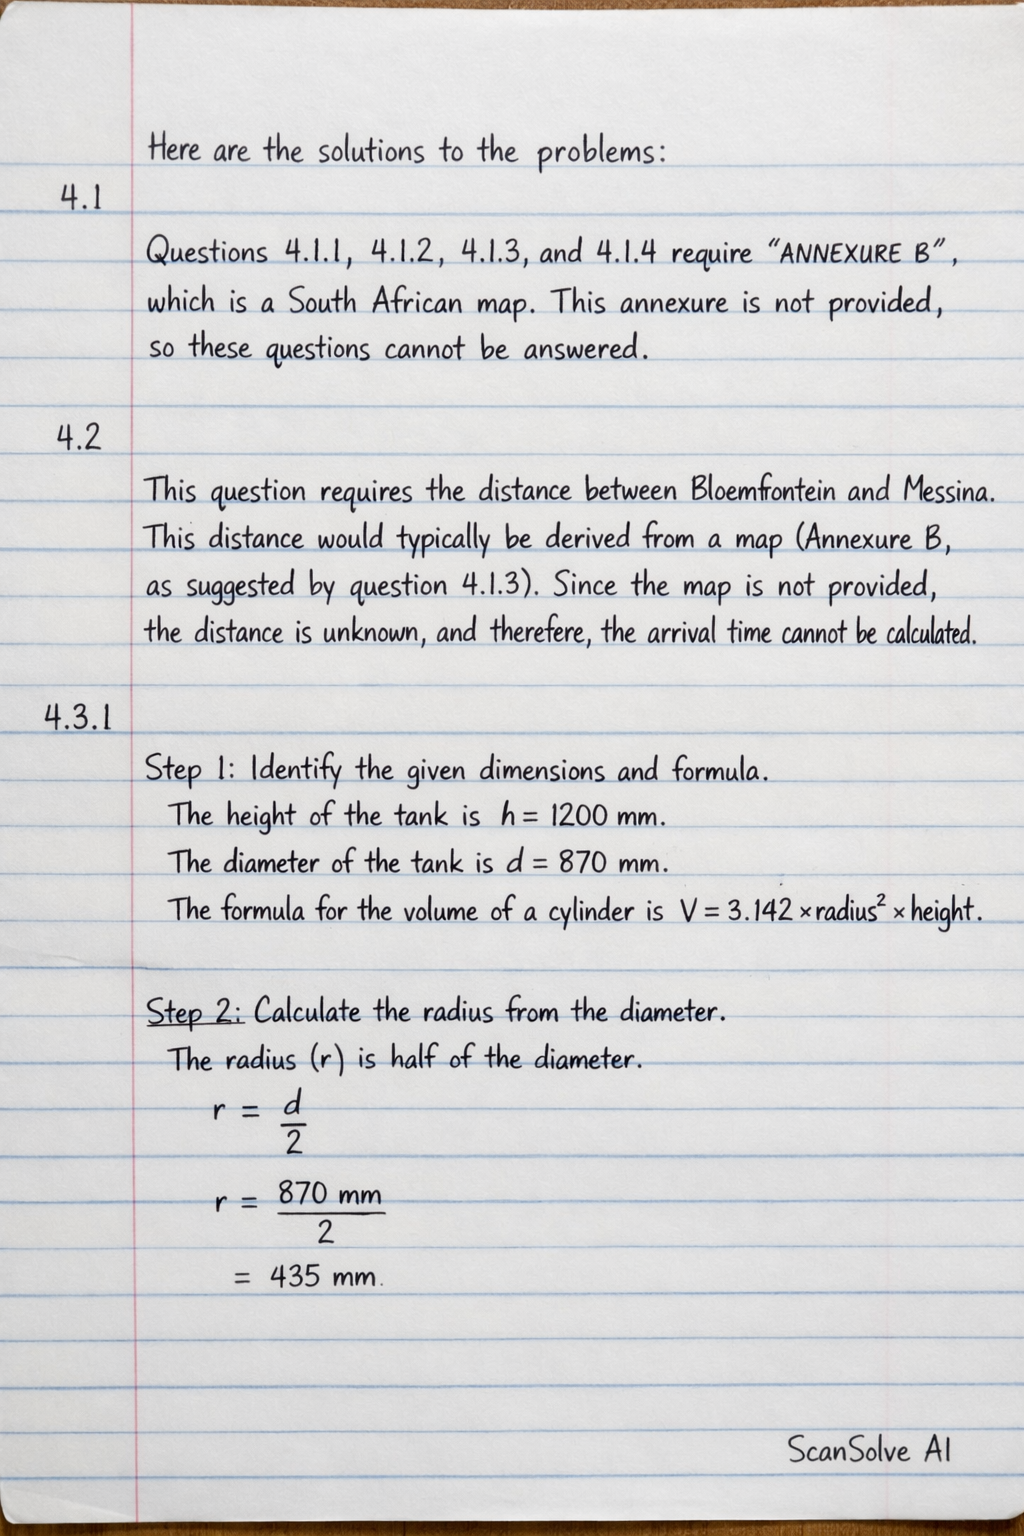 Here are the solutions to the problems:
4.1
Questions 4.1.1, 4.1.2, 4.1.3, and 4.1.4 require “ANNEXURE B”,
which is a South African map. This annexure is not provided,
so these questions cannot be answered.
4.2
This question requires the distance between Bloemfrontein and Messina.
This distance would typically be derived from a map (Annexure B,
as suggested by question 4.1.3). Since the map is not provided,
the distance is unknown, and therefere, the arrival time cannot be calculated.
4.3.1
Step 1: Identify the given dimensions and formula.
The height of the tank is h = 1200 mm.
The diameter of the tank is d = 870 mm.
The formula for the volume of a cylinder is V = 3.142 × radius² × height.
Step 2: Calculate the radius from the diameter.
The radius (r) is half of the diameter.
r = d
2
r = 870 mm
2
= 435 mm.
ScanSolve AI